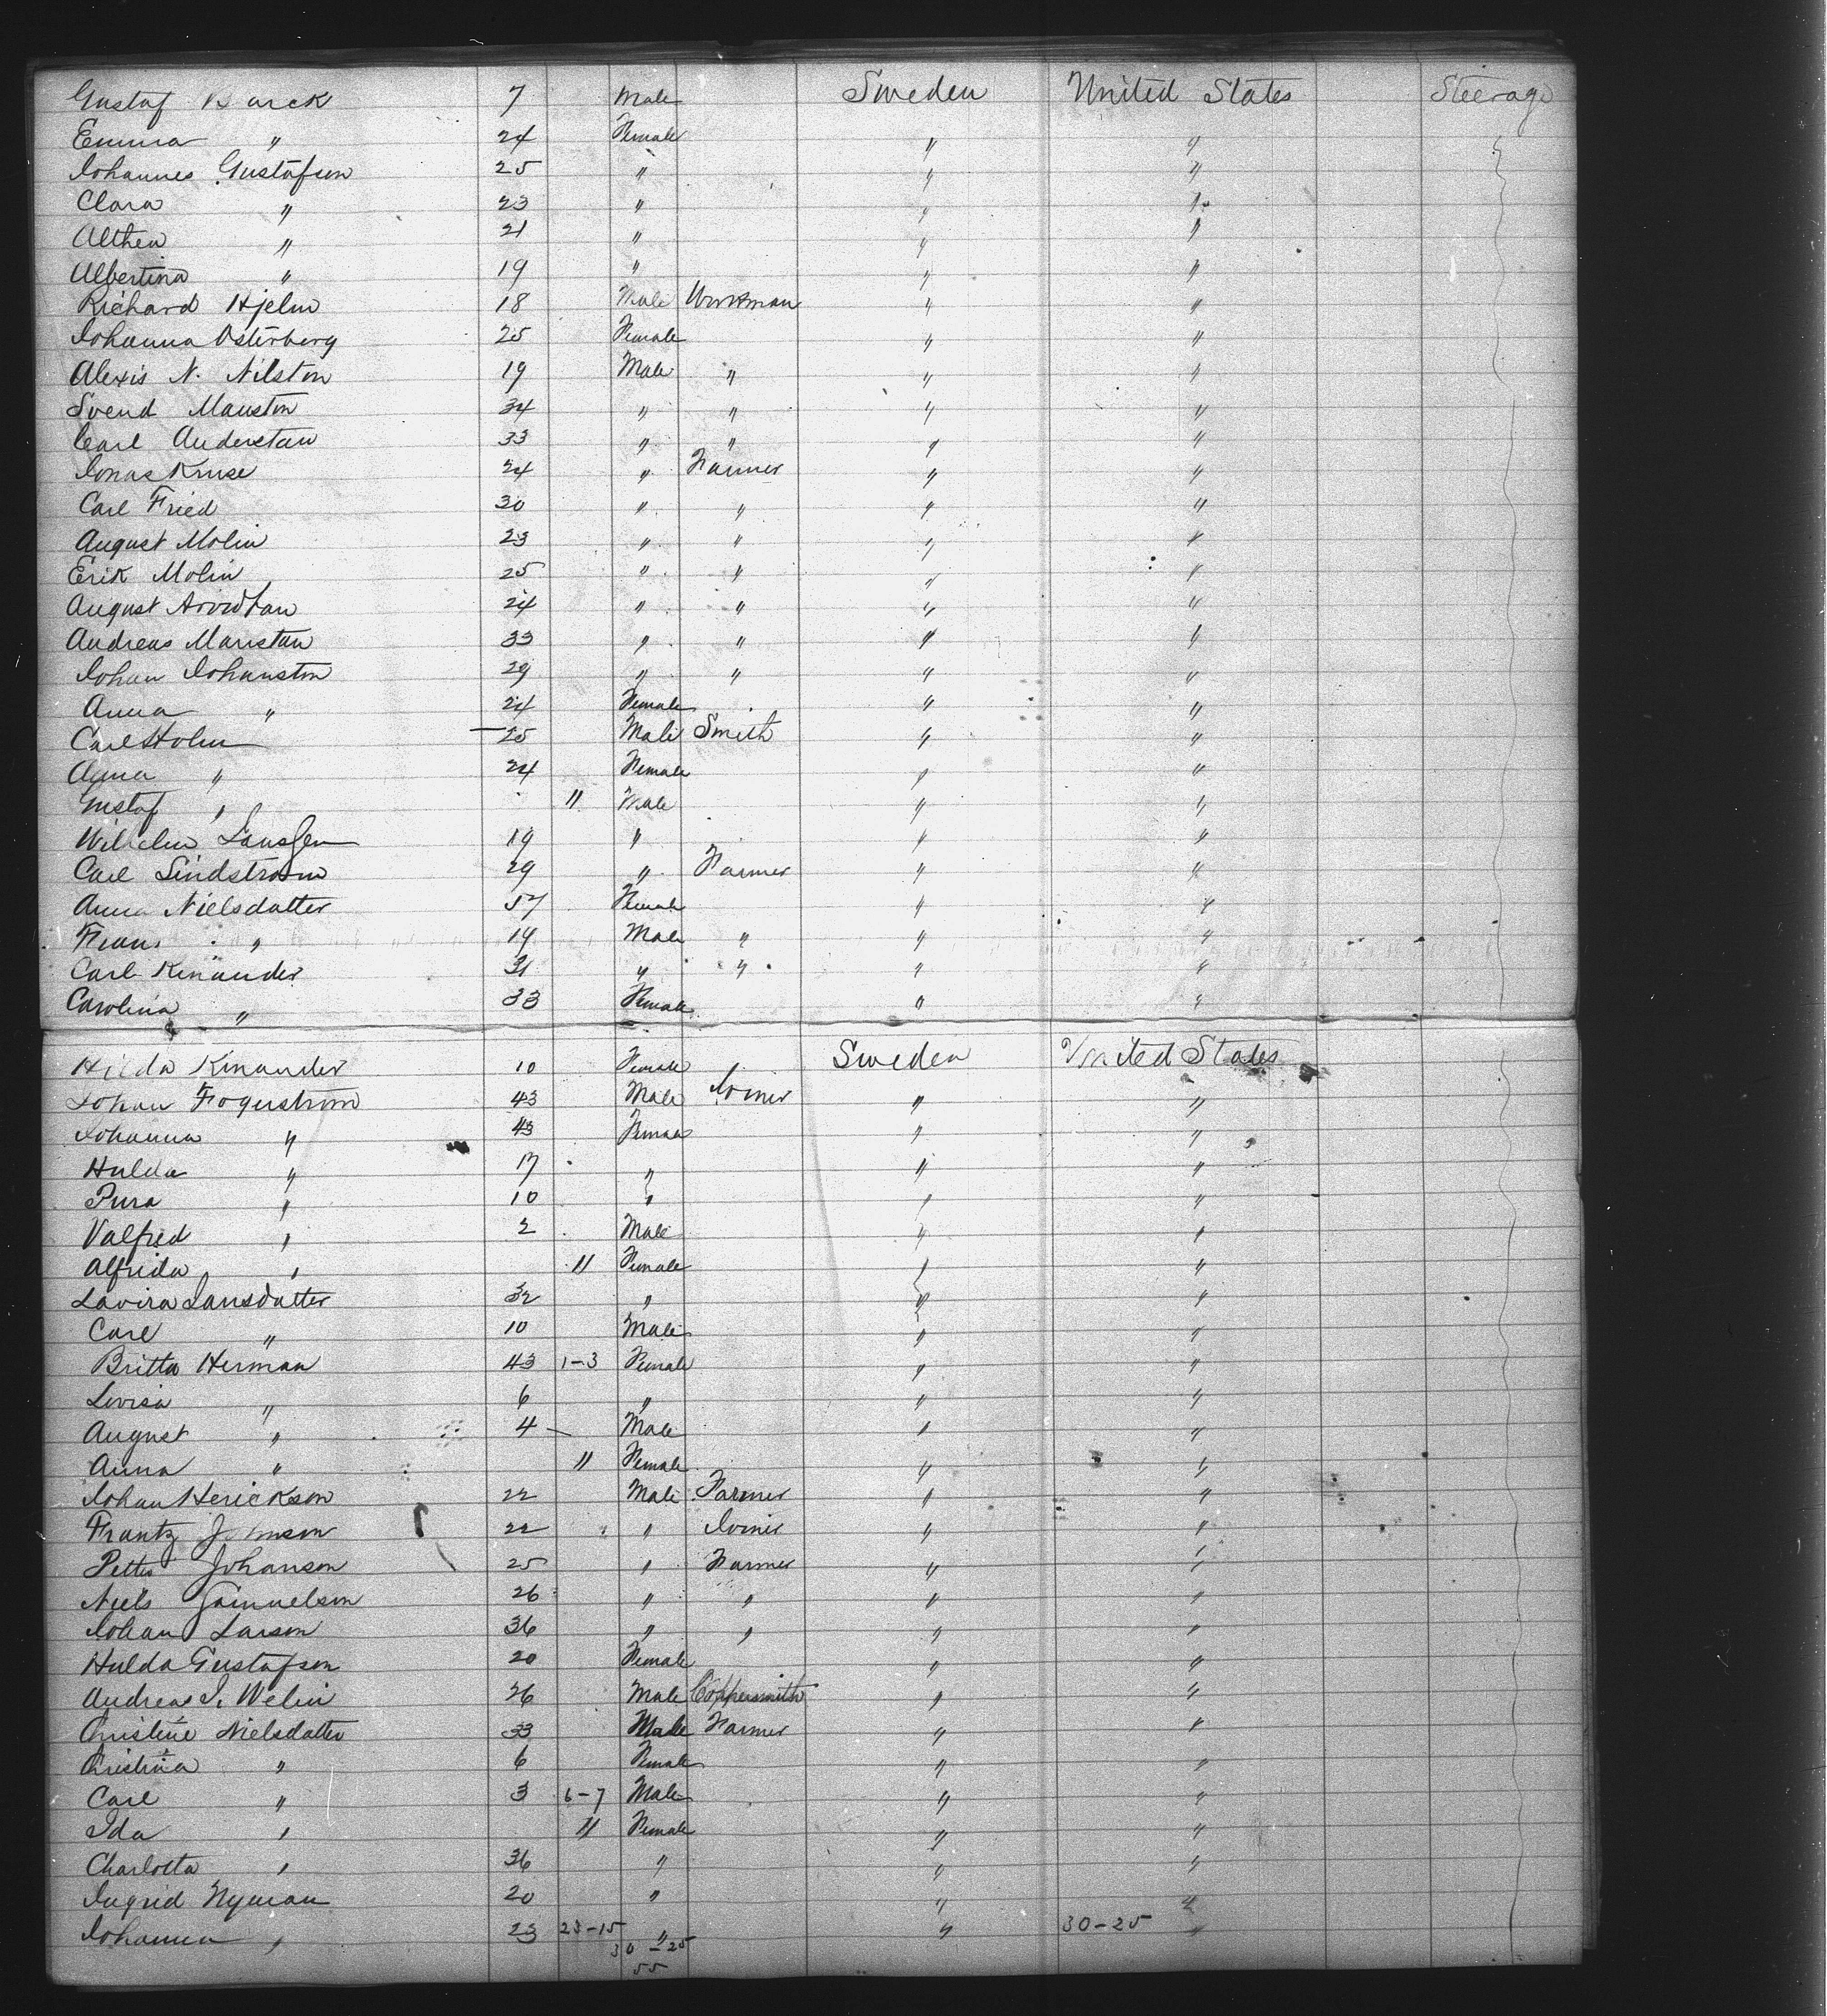 Gustaf Barck 7 Male Sweden United States Steerage
Emma " 24 Female " "
Johannes Gustafson 25 " " "
Clara " 23 " " "
Althea " 21 " " "
Albertina " 19 " " "
Richard Hjelm 18 Male Workman " "
Johanna Osterberg 25 Female " "
Alexis N. Nilston 19 Male " " "
Svend Manston 34 " " " "
Carl Anderstan 33 " " " "
Jonas Kruse 24 " Farmer " "
Carl Fried 30 " " " "
August Molin 23 " " " "
Erik Molin 25 " " " "
August Arvidtan 24 " " " "
Andreas Manstan 33 " " " "
Johan Johanston 29 " " " "
Anna " 24 Female " "
Carl Holm 25 Male Smith " "
Anna " 24 Female " "
Gustaf " 11 Male " "
Wilhelm 19 " " "
Carl Lindstrom 29 " Farmer " "
Anna Nielsdatter 57 Female " "
Frans " 19 Male " " "
Carl Kinander 31 " " " "
Carolina " 33 Female " "
Hilda Kinander 10 Female Sweden United States
Johan Fogerstrom 43 Male Joiner " "
Johanna " 43 Female " "
Hulda " 17 " " "
Pura " 10 " " "
Valfred " 2 Male " "
Alfrida " 11 Female " "
Lavira Lansdatter 32 " " "
Carl " 10 Male " "
Britta Herman 43 1-3 Female " "
Lovisa " 6 " " "
August " 4 Male " "
Anna " 11 Female " "
Johan Herickson 22 Male Farmer " "
Frantz Johnson 22 " Joiner " "
Petter Johanson 25 " Farmer " "
Niels Samuelson 26 " " " "
Johan Larson 36 " " " "
Hulda Gustafson 20 Female " "
Andreas J. Welin 26 Male Coppersmith " "
Christine Nielsdatter 33 Male Farmer " "
Christina " 6 Female " "
Carl " 3 6-7 Male " "
Ida " 11 Female " "
Charlotta " 36 " " "
Ingrid Nyman 20 " " "
Johanna " 23 23-15 " " 30-25 "
30-25
55